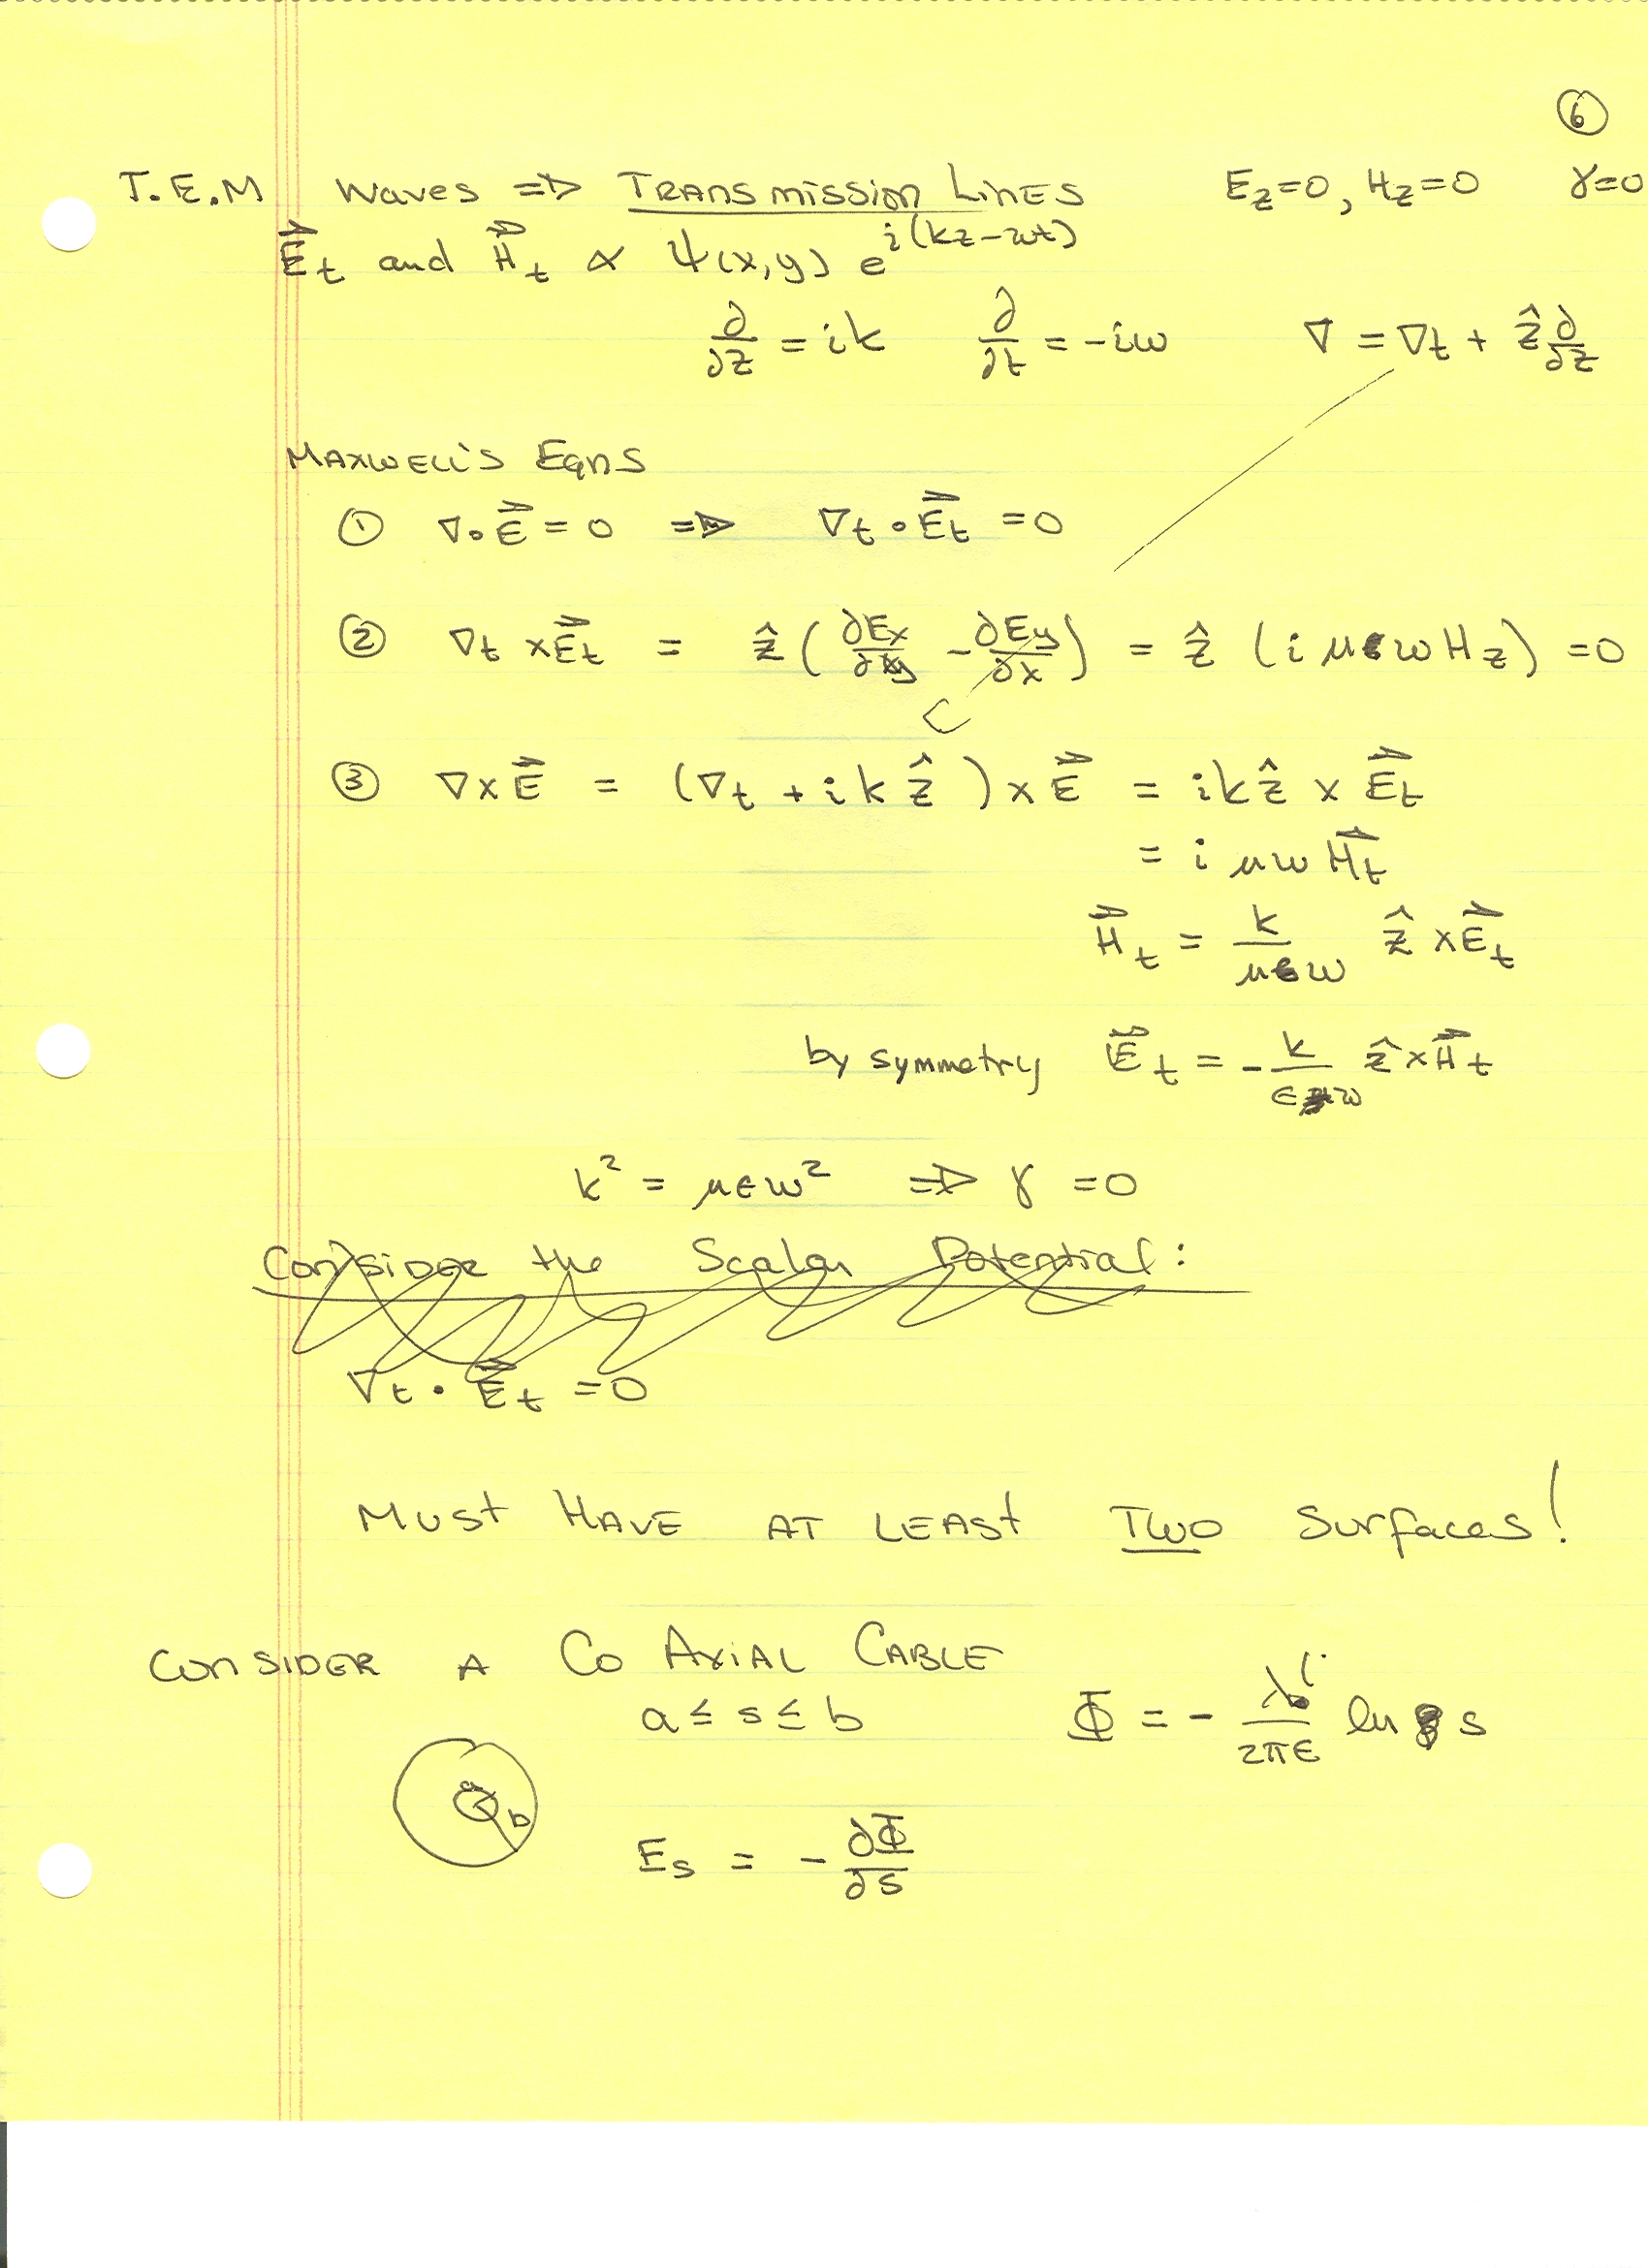 ⑥
T.E.M Waves ⇒ TRANSmission LinES E_z=0, H_z=0 γ=0
E⃗_t and H⃗_t ∝ Ψ(x,y) e^{i(kz-ωt)}
∂/∂z = ik ∂/∂t = -iω ∇ = ∇_t + ẑ ∂/∂z
MAXWELL'S Eqns
① ∇·E⃗ = 0 ⇒ ∇_t·E⃗_t = 0
② ∇_t × E⃗_t = ẑ (∂E_x/∂y - ∂E_y/∂x) = ẑ (iμωH_z) = 0
③ ∇×E⃗ = (∇_t + ikẑ) × E⃗ = ikẑ × E⃗_t
= iμωH⃗_t
H⃗_t = k/μω ẑ × E⃗_t
by symmetry E⃗_t = -k/εω ẑ × H⃗_t
k² = μεω² ⇒ γ = 0
Consider the Scalar Potential:
∇_t · E⃗_t = 0
MUSt HAVE AT LEASt TWO Surfaces!
CONSIDER A CO AXIAL CABLE
a ≤ s ≤ b Φ = - λ/2πε ln s
a
b
E_s = - ∂Φ/∂s